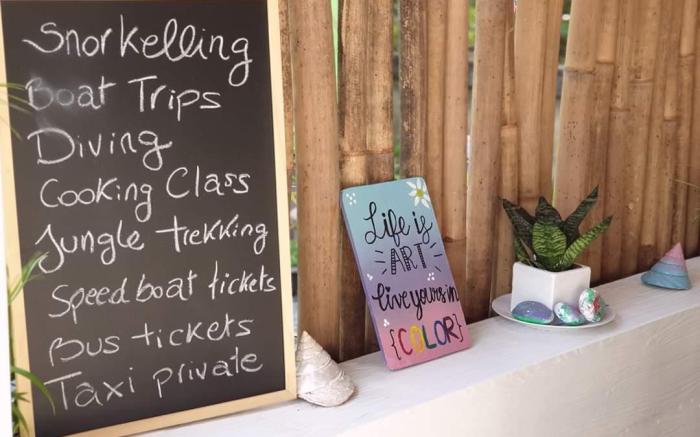 Snorkelling
Boat Trips
Diving
Cooking Class
Jungle trekking
Speed boat tickets
Bus tickets
Taxi private
Life is
ART
live yours in
{COLOR}